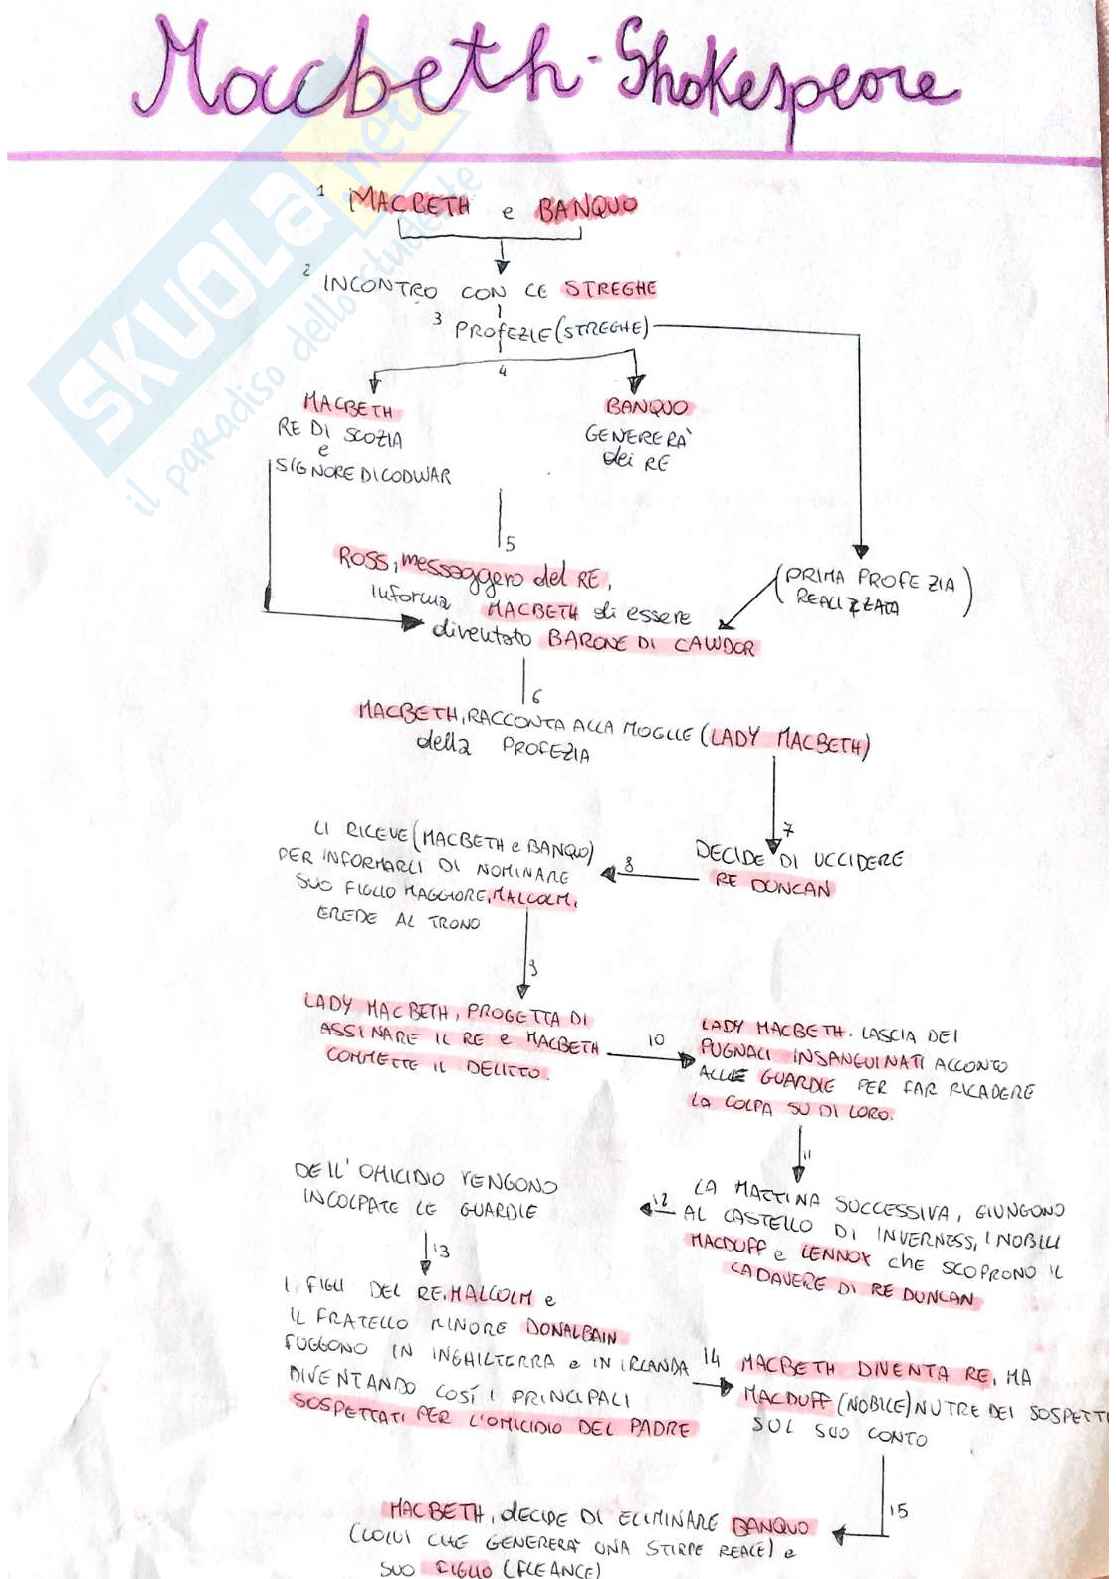 Macbeth - Shakespeare
SKUOLA.net
il paradiso dello studente
1 MACBETH e BANQUO
2 INCONTRO CON LE STREGHE
3 PROFEZIE (STREGHE)
4
MACBETH
RE DI SCOZIA
e
SIGNORE DI CODWAR
BANQUO
GENERERÀ
dei RE
5
ROSS, messaggero del RE,
informa MACBETH di essere
diventato BARONE DI CAWDOR
(PRIMA PROFEZIA
REALIZZATA)
6
MACBETH, RACCONTA ALLA MOGLIE (LADY MACBETH)
della PROFEZIA
7
DECIDE DI UCCIDERE
RE DUNCAN
8
LI RICEVE (MACBETH e BANQUO)
PER INFORMARLI DI NOMINARE
SUO FIGLIO MAGGIORE, MALCOLM,
EREDE AL TRONO
9
LADY MACBETH, PROGETTA DI
ASSINARE IL RE e MACBETH
COMMETTE IL DELITTO.
10
LADY MACBETH. LASCIA DEI
PUGNALI INSANGUINATI ACCONTO
ALLE GUARDIE PER FAR RICADERE
LA COLPA SU DI LORO.
11
LA MATTINA SUCCESSIVA, GIUNGONO
AL CASTELLO DI INVERNESS, I NOBILI
MACDUFF e LENNOX che SCOPRONO IL
CADAVERE DI RE DUNCAN
12
DELL'OMICIDIO VENGONO
INCOLPATE LE GUARDIE
13
I FIGLI DEL RE, MALCOLM e
IL FRATELLO MINORE DONALBAIN
FUGGONO IN INGHILTERRA e IN IRLANDA
DIVENTANDO COSÍ I PRINCIPALI
SOSPETTATI PER L'OMICIDIO DEL PADRE
14
MACBETH DIVENTA RE, MA
MACDUFF (NOBILE) NUTRE DEI SOSPETTI
SUL SUO CONTO
15
MACBETH, decide DI ELIMINARE BANQUO
(COLUI CHE GENERERÀ UNA STIRPE REALE) e
SUO FIGLIO (FLEANCE)